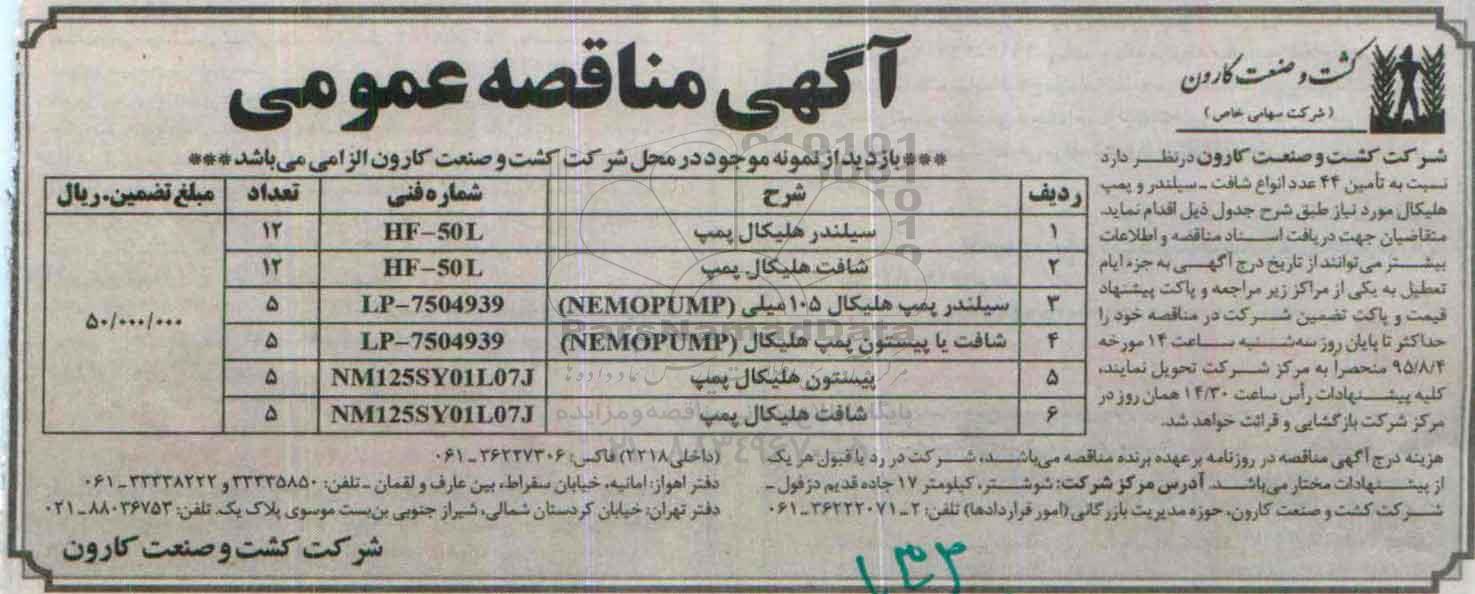 کشت و صنعت کارون
(شرکت سهامی خاص)
آگهی مناقصه عمومی
***بازدید از نمونه موجود در محل شرکت کشت و صنعت کارون الزامی می‌باشد***
شرکت کشت و صنعت کارون در نظر دارد
نسبت به تأمین ۴۴ عدد انواع شافت ـ سیلندر و پمپ
هلیکال مورد نیاز طبق شرح جدول ذیل اقدام نماید.
متقاضیان جهت دریافت اسناد مناقصه و اطلاعات
بیشتر می‌توانند از تاریخ درج آگهی به جزء ایام
تعطیل به یکی از مراکز زیر مراجعه و پاکت پیشنهاد
قیمت و پاکت تضمین شرکت در مناقصه خود را
حداکثر تا پایان روز سه‌شنبه ساعت ۱۴ مورخه
۹۵/۸/۴ منحصراً به مرکز شرکت تحویل نمایند،
کلیه پیشنهادات رأس ساعت ۱۴/۳۰ همان روز در
مرکز شرکت بازگشایی و قرائت خواهد شد.
ردیف شرح شماره فنی تعداد مبلغ تضمین-ریال
۱ سیلندر هلیکال پمپ HF-50L ۱۲
۲ شافت هلیکال پمپ HF-50L ۱۲
۳ سیلندر پمپ هلیکال ۱۰۵ میلی (NEMOPUMP) LP-7504939 ۵
۵۰/۰۰۰/۰۰۰
۴ شافت یا پیستون پمپ هلیکال (NEMOPUMP) LP-7504939 ۵
۵ پیستون هلیکال پمپ NM125SY01L07J ۵
۶ شافت هلیکال پمپ NM125SY01L07J ۵
هزینه درج آگهی مناقصه در روزنامه بر عهده برنده مناقصه می‌باشد، شرکت در رد یا قبول هر یک
از پیشنهادات مختار می‌باشد. آدرس مرکز شرکت: شوشتر، کیلومتر ۱۷ جاده قدیم دزفول ـ
شرکت کشت و صنعت کارون، حوزه مدیریت بازرگانی (امور قراردادها) تلفن: ۲-۳۶۲۲۲۰۷۱-۰۶۱
(داخلی ۲۲۱۸) فاکس: ۳۶۲۲۷۳۰۶-۰۶۱
دفتر اهواز: امانیه، خیابان سقراط، بین عارف و لقمان ـ تلفن: ۳۳۳۳۵۸۵۰ و ۳۳۳۳۸۲۲۲-۰۶۱
دفتر تهران: خیابان کردستان شمالی، شیراز جنوبی بن‌بست موسوی پلاک یک. تلفن: ۸۸۰۳۶۷۵۳-۰۲۱
شرکت کشت و صنعت کارون
ParsNamadData